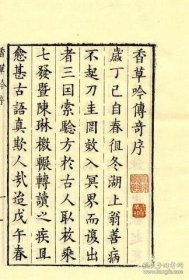 香草吟傳奇序
歲丁巳自春徂冬湖上翁善病
不起刀圭罔效入冥界而復出
者三因索騐方於古人取枚乘
七發曁陳琳檄輾轉讀之疾且
愈甚古語真欺人哉迨戊午春
香草吟